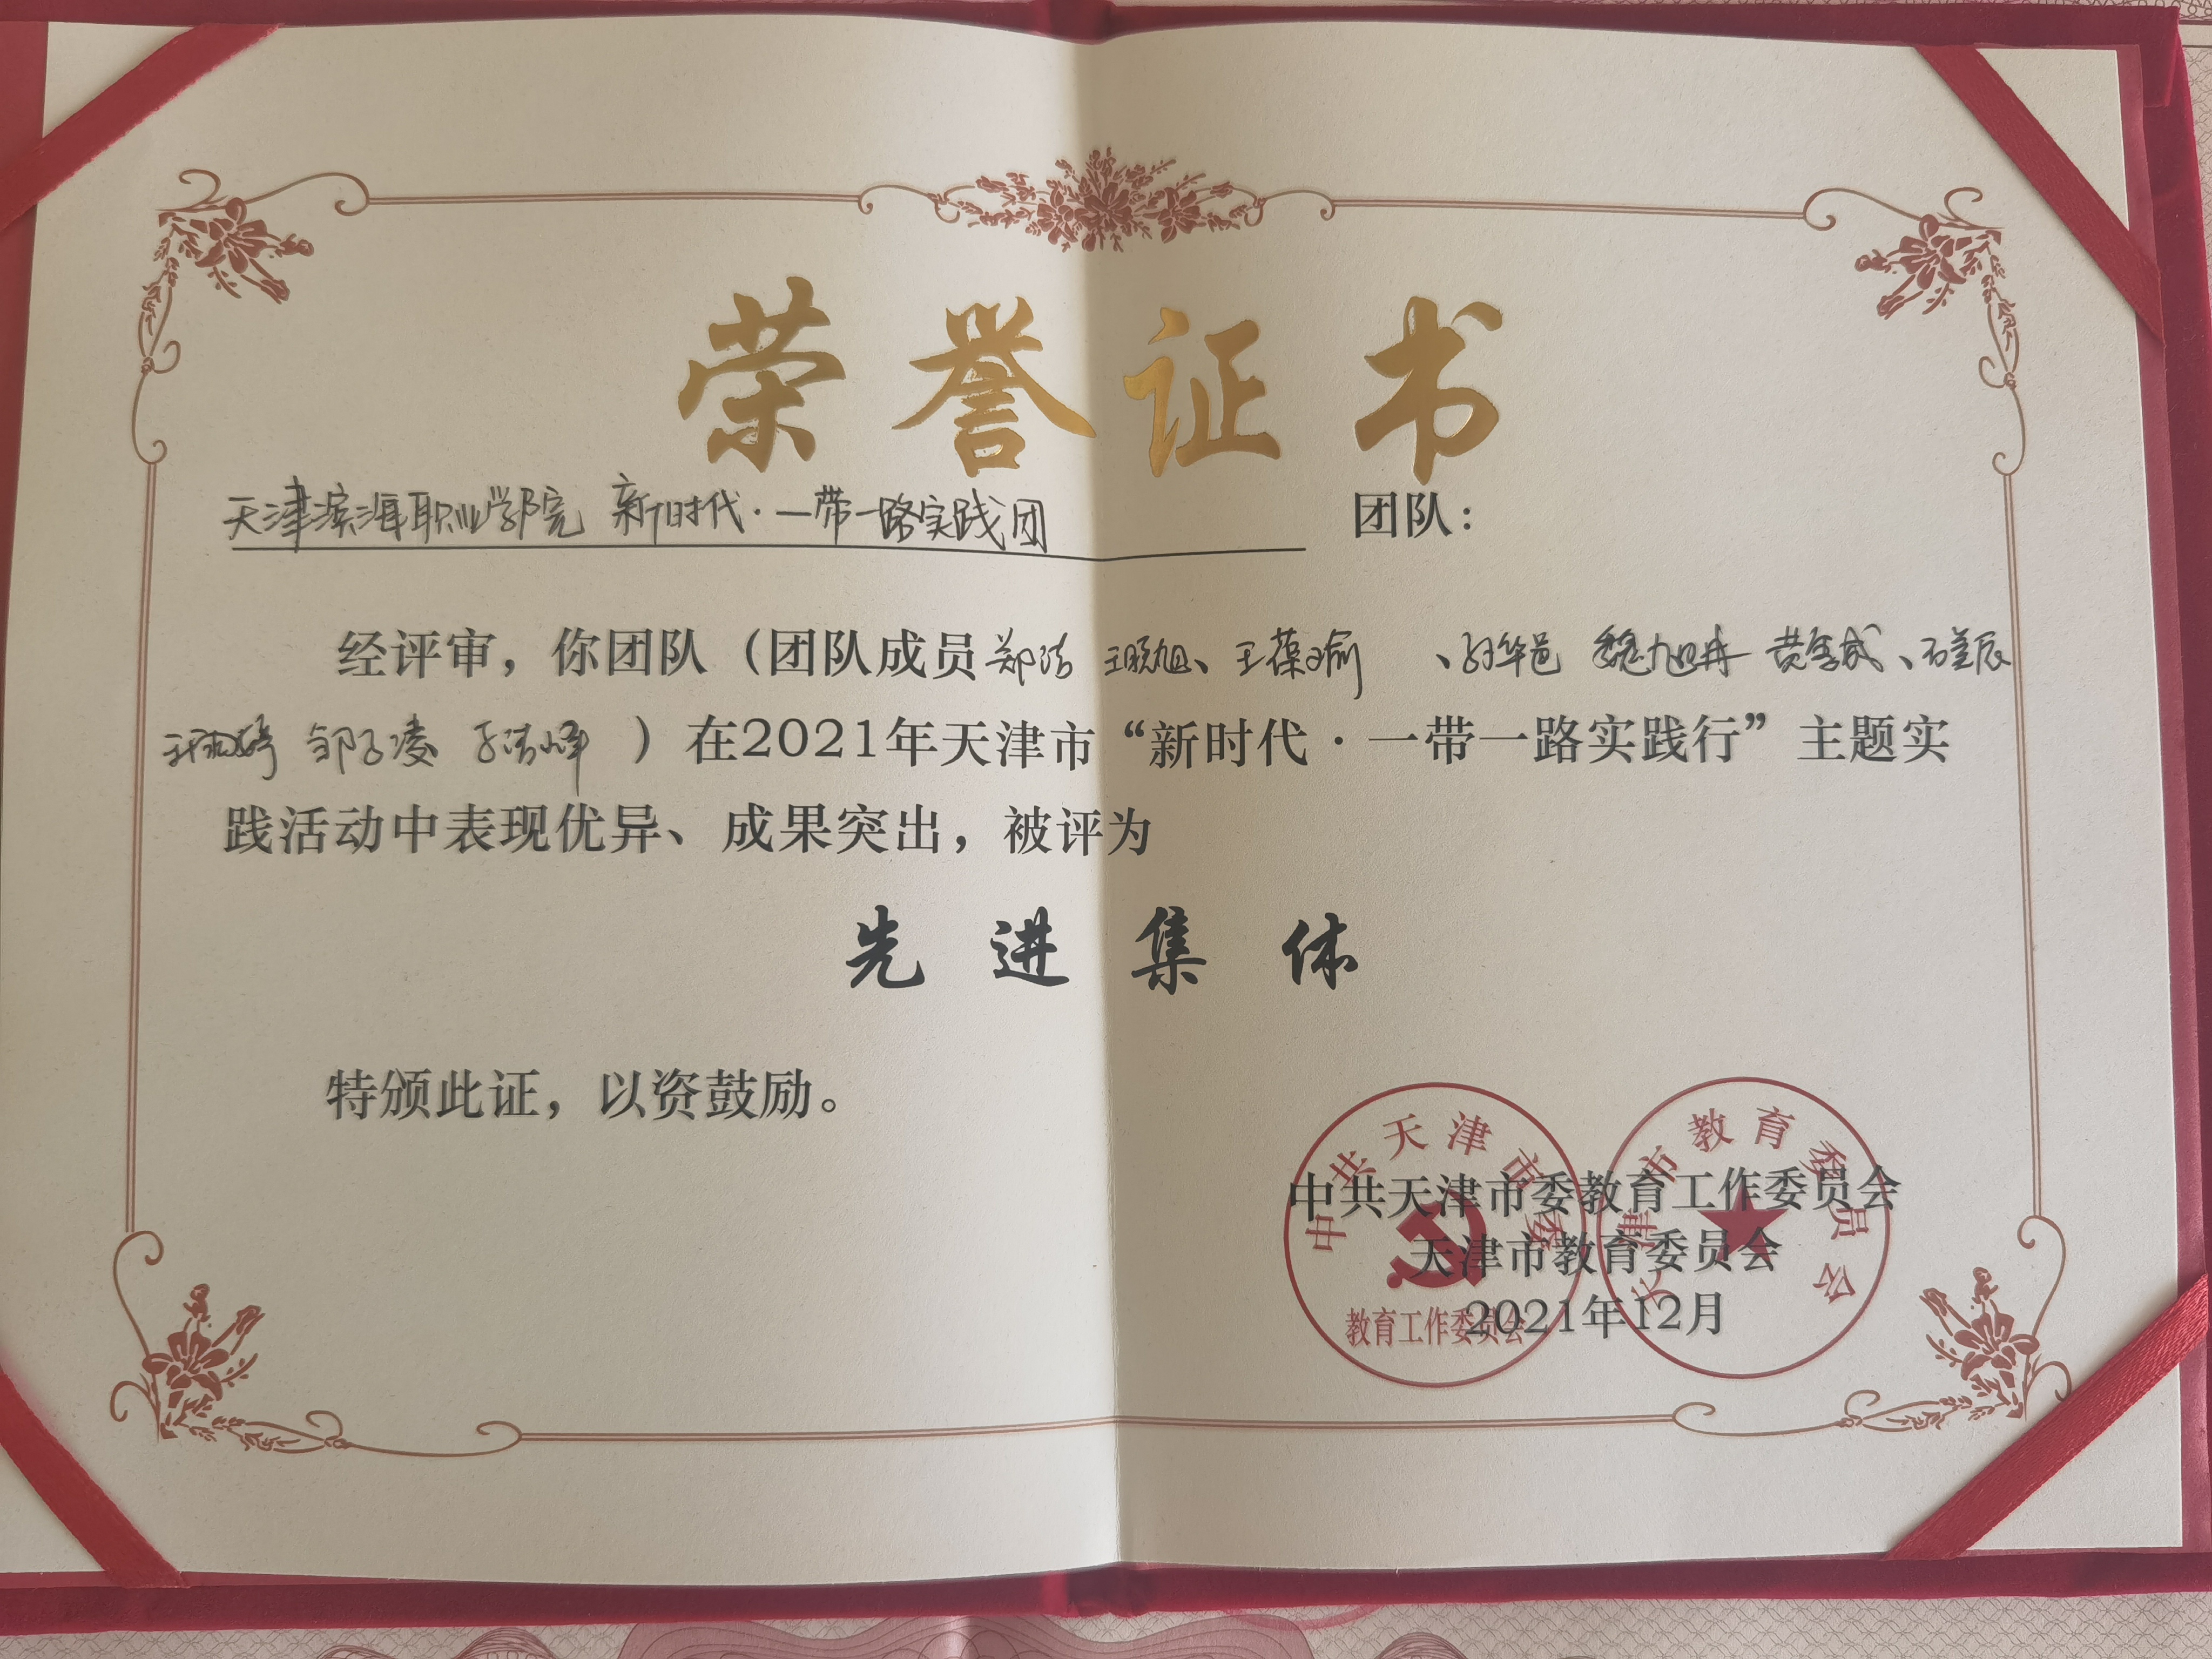 荣誉证书
天津滨海职业学院 新时代·一带一路实践团 团队：
经评审，你团队（团队成员郑洁 王晓旭、王葆瑜、孙华邑 魏旭冉 黄 成、石 辰
王 婷 邹子凌 于洁峰）在2021年天津市“新时代·一带一路实践行”主题实
践活动中表现优异、成果突出，被评为
先进集体
特颁此证，以资鼓励。
中共天津市委教育工作委员会
天津市教育委员会
2021年12月
中共天津市委
教育工作委员会
天津市教育委员会